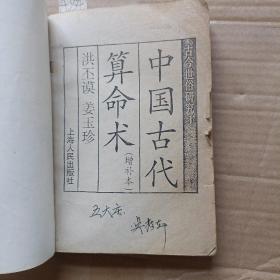 古今世俗研究1
中国古代
算命术
(增补本)
洪丕谟 姜玉珍
上海人民出版社